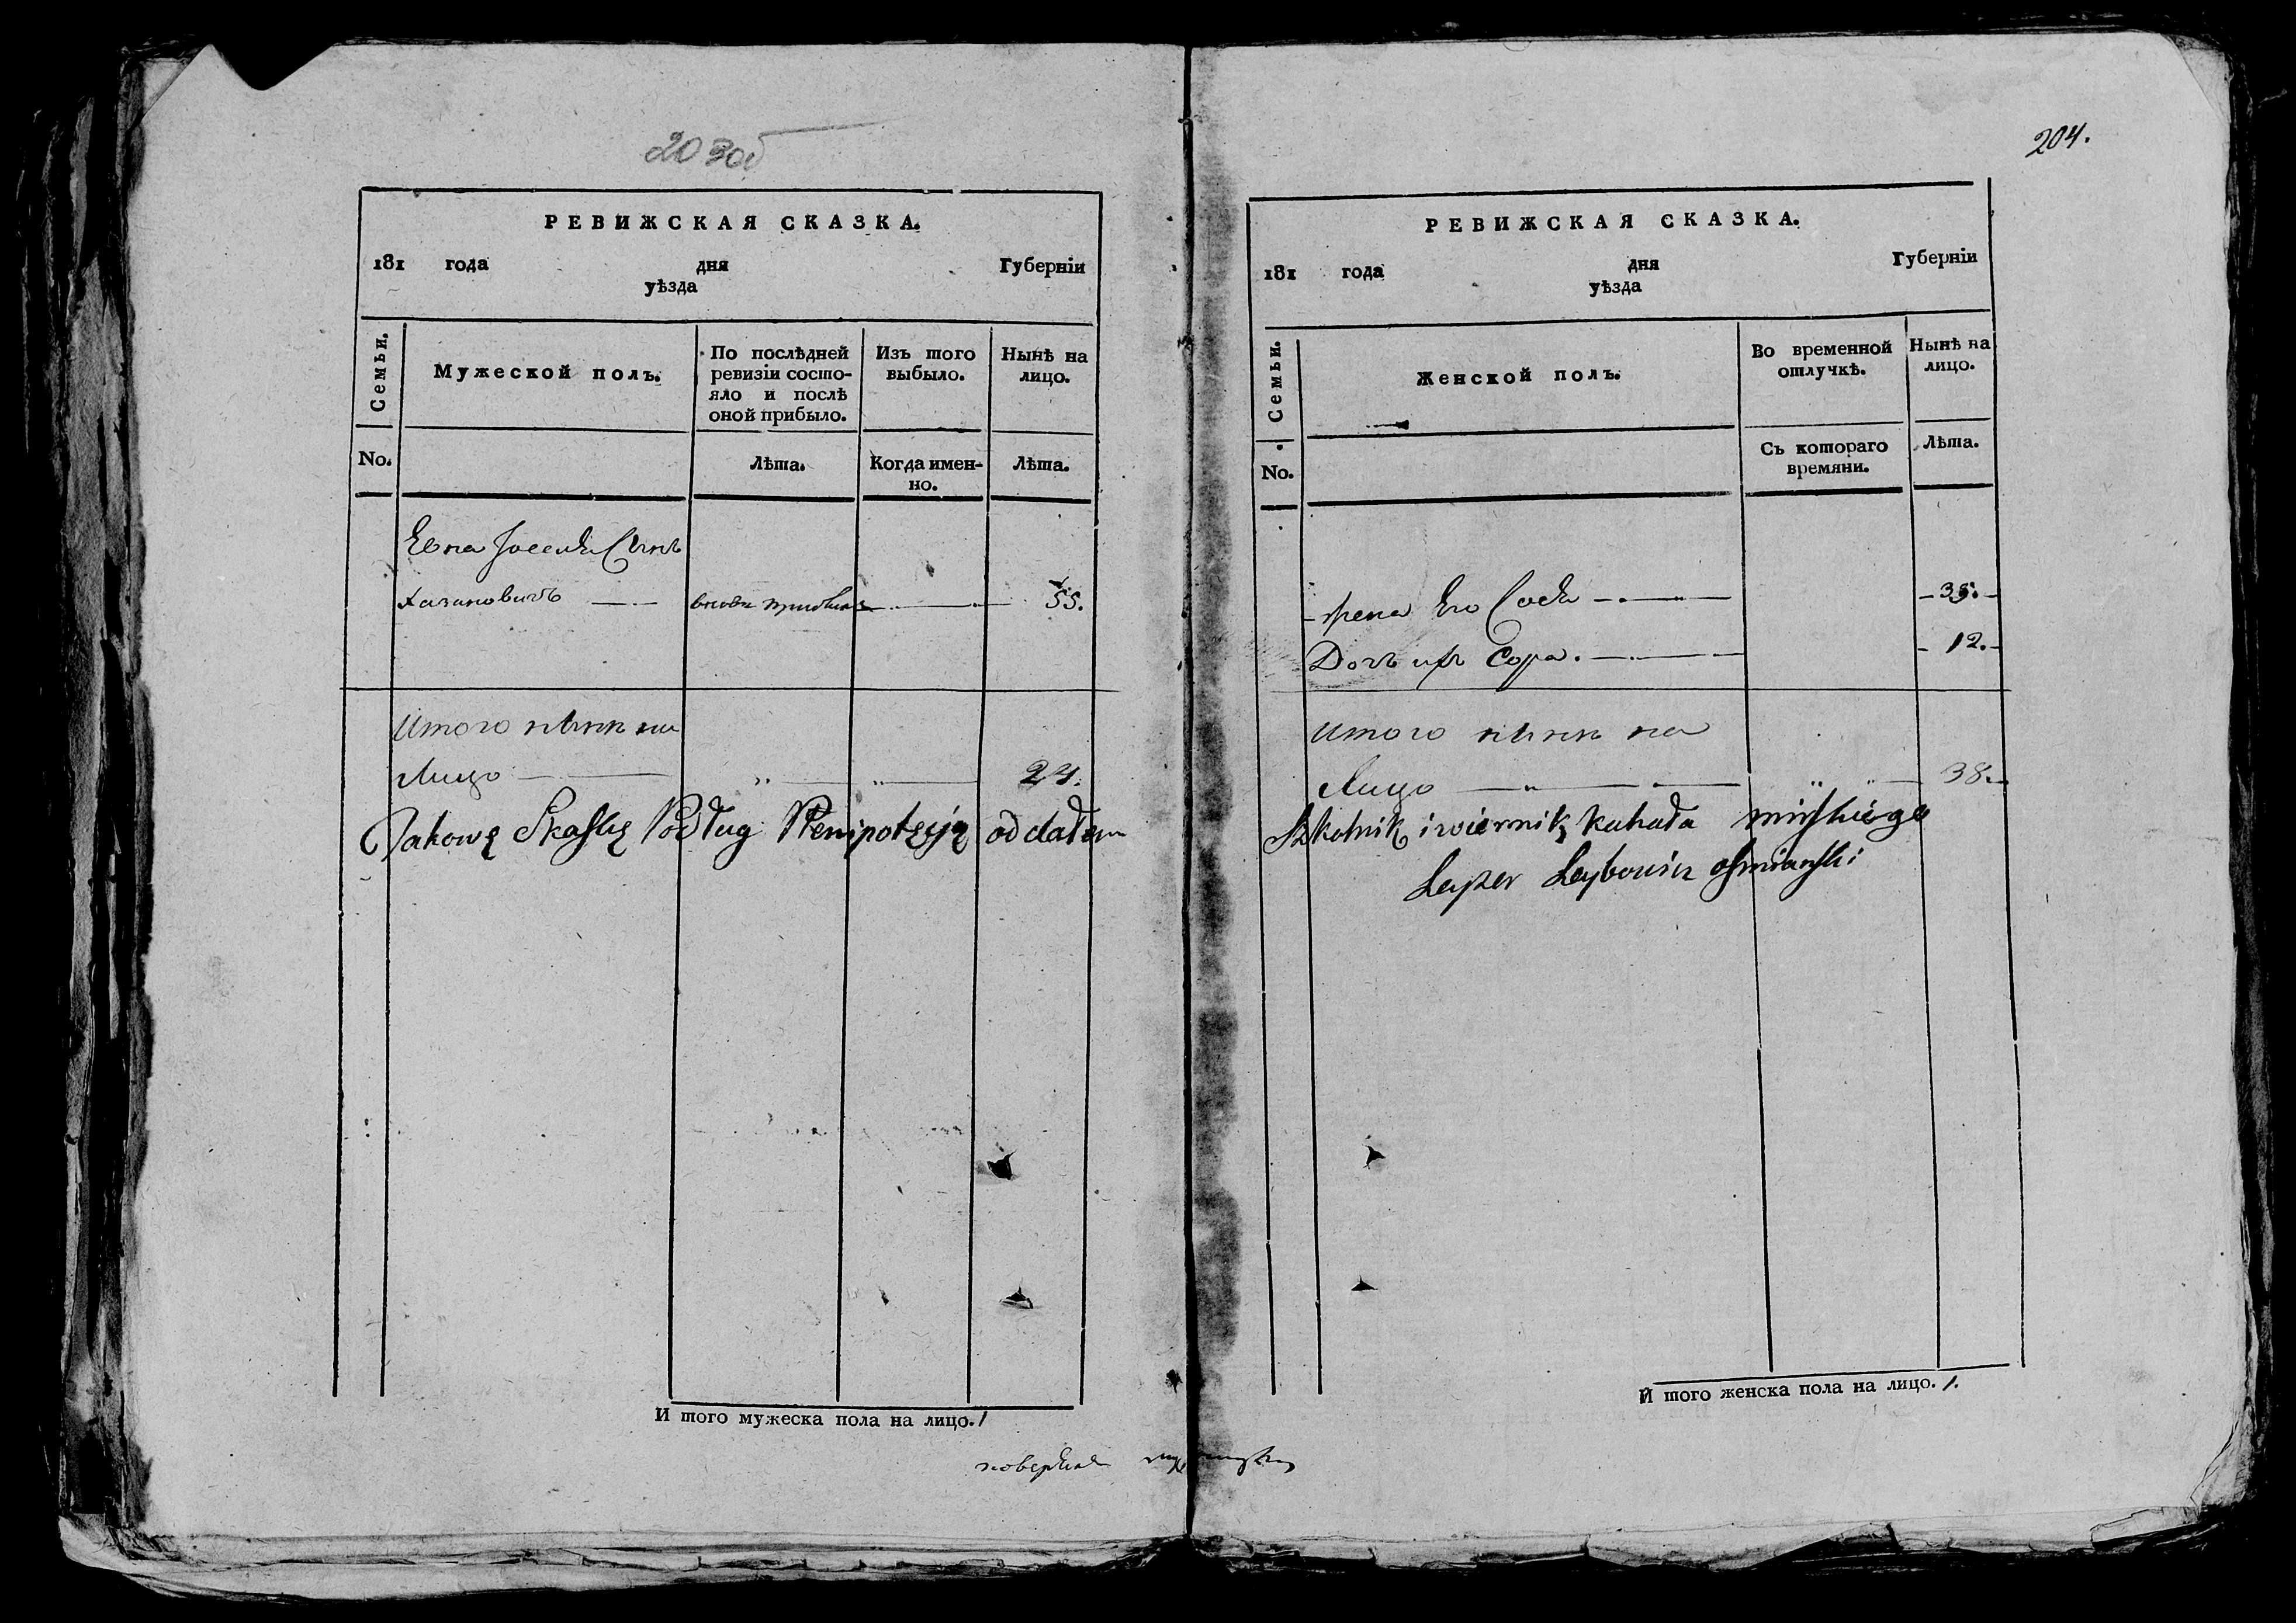 203об
РЕВИЖСКАЯ СКАЗКА.
181 года дня Губерніи
уѣзда
Семьи.
Мужеской полъ.
По послѣдней ревизіи состо-
яло и послѣ
оной прибыло.
Изъ того
выбыло.
Нынѣ на
лицо.
No.
Лѣта.
Когда имен-
но.
Лѣта.
Сынъ
вновь прибылъ 55.
Итого нынѣ на
Лицо 24.
Takowę Skaskę Podług Plenipotęcją oddałem
И того мужеска пола на лицо. 1
204.
РЕВИЖСКАЯ СКАЗКА.
181 года дня Губерніи
уѣзда
Семьи.
Женской полъ.
Во временной
отлучкѣ.
Нынѣ на
лицо.
No.
Съ котораго
времяни.
Лѣта.
Его 35.
Дочь ихъ Сора. 12.
Итого нынѣ на
Лицо 38.
Szkolnik i wiernik kahała
Leyzer Leybowicz Oszmianski
И того женска пола на лицо. 1.